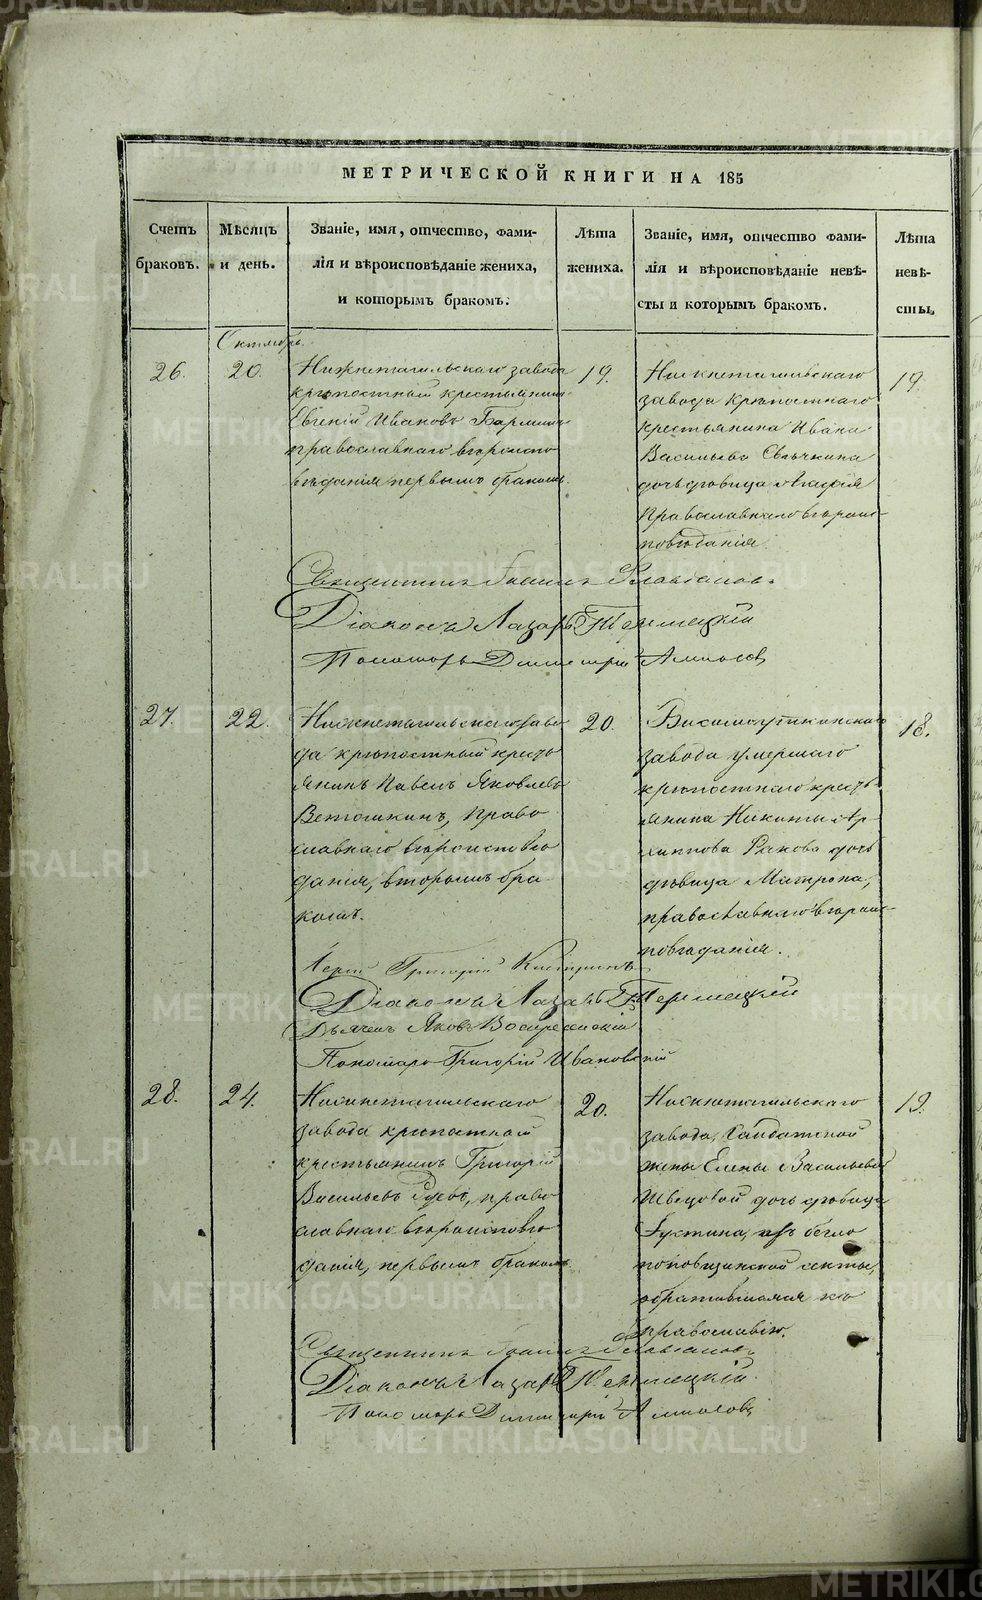 МЕТРИЧЕСКОЙ КНИГИ НА 185
Счетъ браковъ.
Мѣсяцъ и день.
Званіе, имя, отчество, фами-
лія и вѣроисповѣданіе жениха,
и которымъ бракомъ.
Лѣта жениха.
Званіе, имя, отчество фами-
лія и вѣроисповѣданіе невѣ-
сты и которымъ бракомъ.
Лѣта невѣ-
сты.
Октябрь.
26.
20.
Нижнетагильскаго завода
крѣпостный крестьянинъ
Евгеній Ивановъ
православнаго вѣроиспо
вѣданія первымъ бракомъ
19.
Нижнетагильскаго
завода крѣпостнаго
крестьянина Ивана
Васильева Свѣчкина
дочь дѣвица Агафія
православнаго вѣроис-
повѣданія
19.
Священникъ Іоаннъ Флавіановъ.
Діаконъ Лазарь
Пономарь Димитрій
27.
22.
Нижнетагильскаго заво
да крѣпостный кресть
янинъ Павелъ Яковлевъ
Ветошкинъ, право
славнаго вѣроисповѣ
данія, вторымъ бра
комъ.
20.
Висимоуткинскаго
завода умершаго
крѣпостнаго кресть
янина Никиты Ар
хиппова Ракова дочь
дѣвица Матрона,
православнаго вѣроис-
повѣданія.
18.
Іерей Григорій
Діаконъ Лазарь
Дьячекъ Яковъ Воскресенскій
Пономарь Григорій Ивановскій
28.
24.
Нижнетагильскаго
завода крѣпостной
крестьянинъ Григорій
Васильевъ Гусевъ, право
славнаго вѣроисповѣ
данія, первымъ бракомъ
20.
Нижнетагильскаго
завода, Солдатской
жены Елены Васильевой
Швецовой дочь дѣвица
Іустина, изъ бѣгло
поповщинской секты,
обратившаяся къ
православію.
19.
Священникъ Іоаннъ Флавіановъ.
Діаконъ Лазарь
Пономарь Димитрій
METRIKI.GASO-URAL.RU